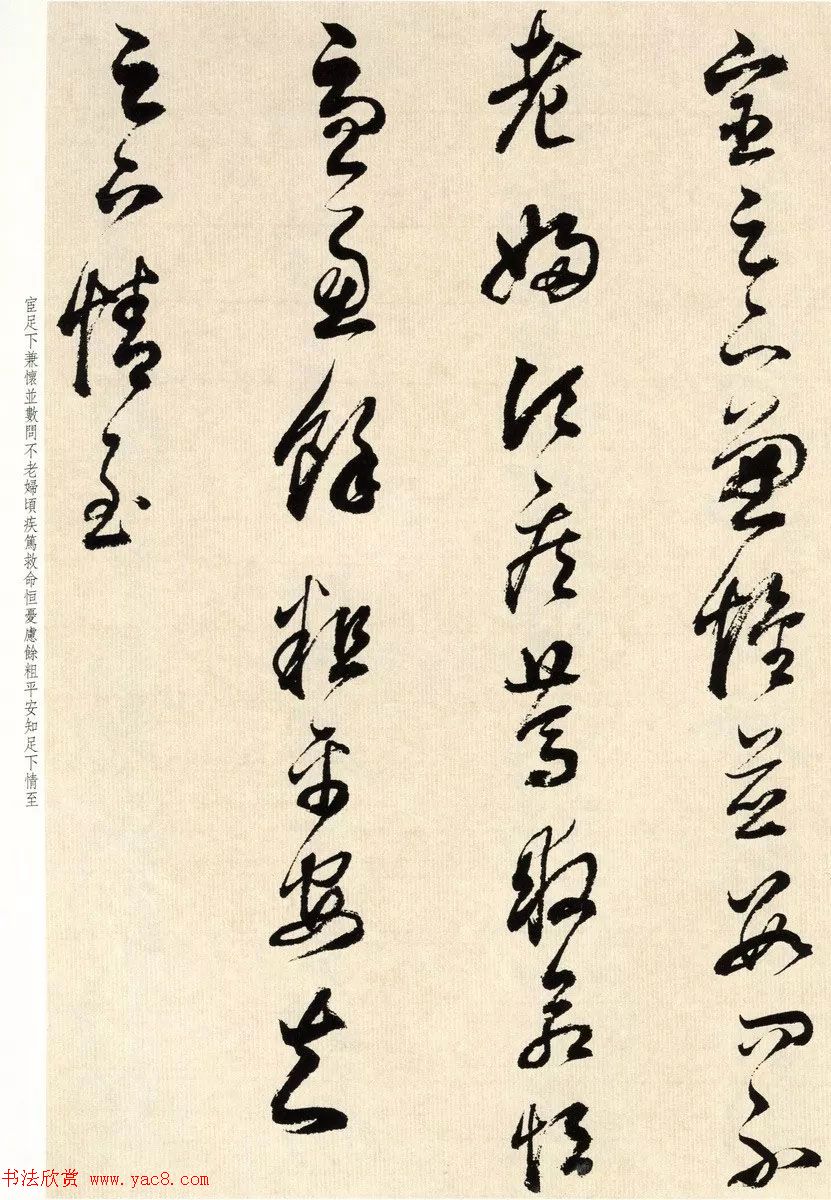 宦足下兼懷並數問不
老婦頃疾篤救命恒
憂慮餘粗平安知
足下情至
宦足下兼懷並數問不老婦頃疾篤救命恒憂慮餘粗平安知足下情至
书法欣赏 www.yac8.com